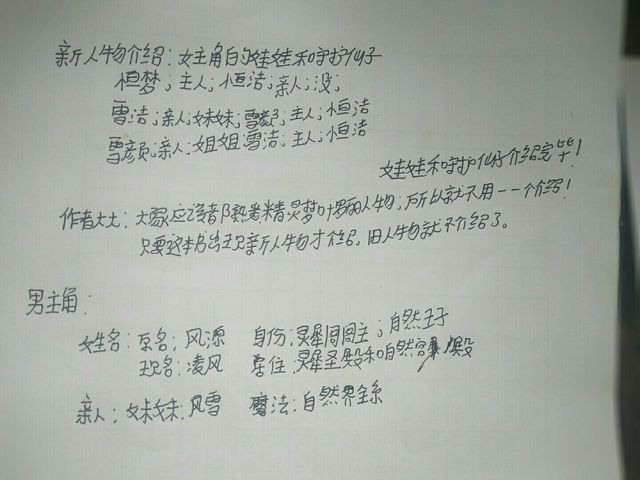 新人物介绍：女主角的娃娃和守护仙子
恒梦；主人；恒洁；亲人；没；
雪洁；亲人；妹妹；雪颜；主人；恒洁
雪颜；亲人；姐姐雪洁；主人；恒洁
娃娃和守护仙子介绍完毕！
作者大大：大家应该都熟悉精灵梦叶罗丽人物，所以就不用一一个介绍！
只要这本书出现新人物才介绍，旧人物就不介绍了。
男主角：
姓名：京名：风源 身份；灵犀阁阁主；自然王子
现名：凌风 居住；灵犀圣殿和自然宫殿
亲人：妹妹：风雪 魔法：自然界全系